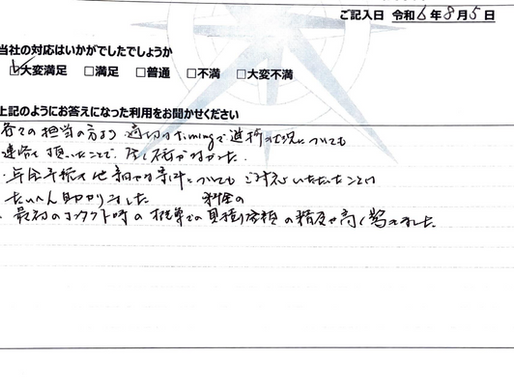 ご記入日 令和6年8月5日
当社の対応はいかがでしたでしょうか
☑大変満足 □満足 □普通 □不満 □大変不満
上記のようにお答えになった利用をお聞かせください
各々の担当の方より 適切なtimingで進捗状況についても
連絡を頂いたことで、全く不安がなかった。
・年金手続や他 についてもご対応いただいたことは
たいへん助かりました 料金の
・最初のコンタクト時の概算での見積り額の精度が高く驚きました。